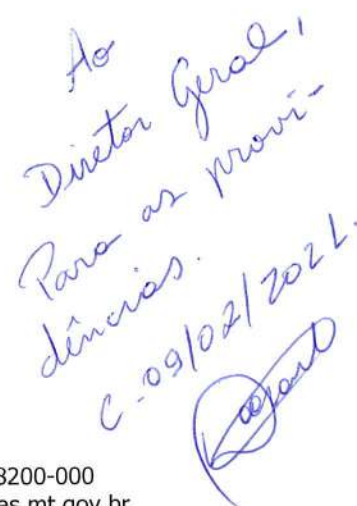 Ao
Diretor Geral,
Para as provi-
dências.
C. 09/02/2021.
8200-000
es.mt.gov.br